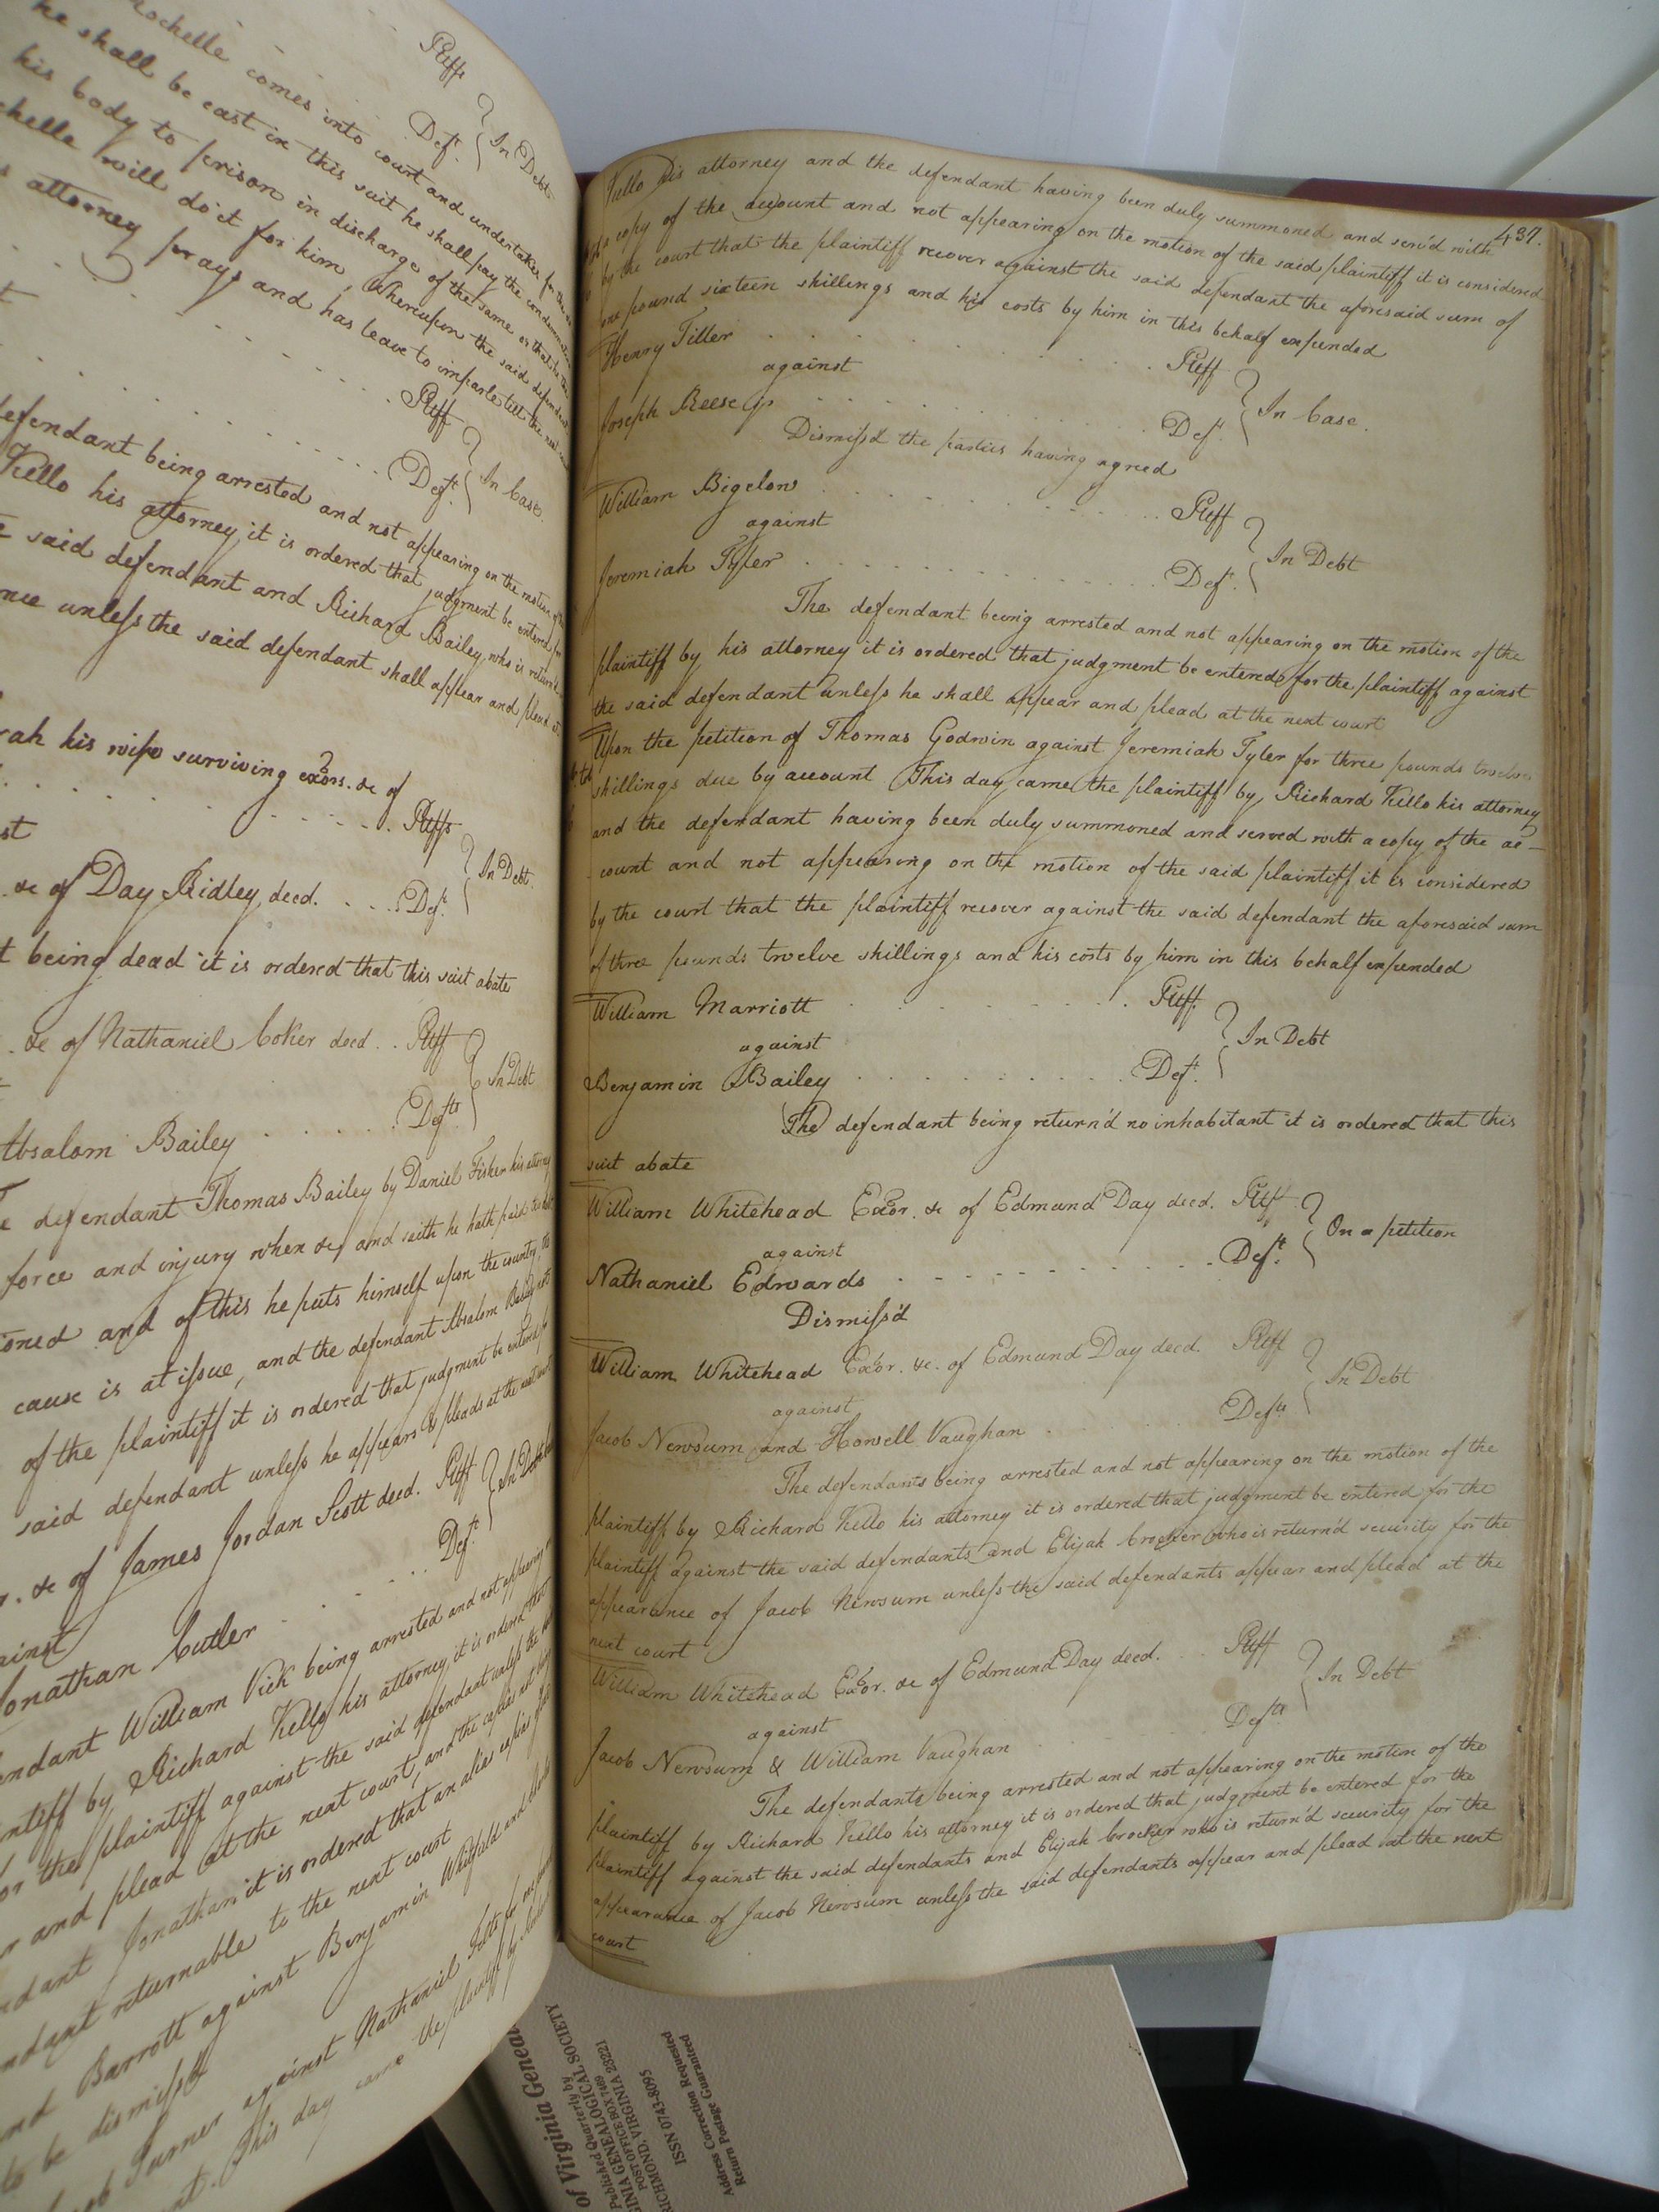 Rochelle comes into court and undertakes for the
Pltff
he shall be cast in this suit he shall pay the condemnation
Deft.
In Debt
his body to prison in discharge of the same or that he the
chelle will do it for him, Whereupon the said defendant
attorney prays and has leave to imparle till the next
Pltff
Deft.
In Case.
defendant being arrested and not appearing on the motion of the
Kello his attorney it is ordered that judgment be entered for
said defendant and Richard Bailey who is return'd
nce unless the said defendant shall appear and plead at
rah his wife surviving exors. &c of
Pltffs
st
In Debt.
&c of Day Ridley, decd. Deft.
t being dead it is ordered that this suit abate
&c of Nathaniel Coker decd. Pltff
In Debt
Defts
Absalom Bailey
defendant Thomas Bailey by Daniel Fisher his attorney
force and injury when &c and saith he hath paid the debt
ioned and of this he puts himself upon the country, the
cause is at issue, and the defendant Absalom Bailey not
of the plaintiff it is ordered that judgment be entered for
said defendant unless he appears & pleads at the next court
r. &c of James Jordan Scott decd. Pltff
In Debt
ainst
Deft.
Jonathan Cutler
endant William Vick being arrested and not appearing
ntiff by Richard Kello his attorney, it is ordered that
or the plaintiff against the said defendant unless the
r and plead at the next court, and the capias not being
ndant Jonathan it is ordered that an alias capias
ndant returnable to the next court
nd Barrott against Benjamin Whitfield and
to be dismiss'd
ob Turner against Nathaniel
nt. This day came the plaintiff by
437.
Kello his attorney and the defendant having been duly summoned and serv'd with
a copy of the account and not appearing on the motion of the said plaintiff it is considered
by the court that the plaintiff recover against the said defendant the aforesaid sum of
one pound sixteen shillings and his costs by him in this behalf expended
Henry Tiller Pltff
against
In Case.
Joseph Reese Deft.
Dismiss'd the parties having agreed
William Bigelow Pltff
against
In Debt
Jeremiah Tyler Deft.
The defendant being arrested and not appearing on the motion of the
plaintiff by his attorney it is ordered that judgment be entered for the plaintiff against
the said defendant unless he shall appear and plead at the next court
Upon the petition of Thomas Godwin against Jeremiah Tyler for three pounds twelve
shillings due by account. This day came the plaintiff by Richard Kello his attorney
and the defendant having been duly summoned and served with a copy of the ac-
count and not appearing on the motion of the said plaintiff it is considered
by the court that the plaintiff recover against the said defendant the aforesaid sum
of three pounds twelve shillings and his costs by him in this behalf expended
William Marriott Pltff.
against
In Debt
Benjamin Bailey Deft.
The defendant being return'd no inhabitant it is ordered that this
suit abate
William Whitehead Exor. &c of Edmund Day decd. Pltff
against
On a petition
Nathaniel Edwards Deft.
Dismiss'd
William Whitehead Exor. &c. of Edmund Day decd. Pltff
against
In Debt
Jacob Newsum and Howell Vaughan Defts
The defendants being arrested and not appearing on the motion of the
plaintiff by Richard Kello his attorney it is ordered that judgment be entered for the
plaintiff against the said defendants and Elijah Crocker who is return'd security for the
appearance of Jacob Newsum unless the said defendants appear and plead at the
next court
William Whitehead Exor. &c of Edmund Day decd. Pltff
against
In Debt
Jacob Newsum & William Vaughan Defts
The defendants being arrested and not appearing on the motion of the
plaintiff by Richard Kello his attorney it is ordered that judgment be entered for the
plaintiff against the said defendants and Elijah Crocker who is return'd security for the
appearance of Jacob Newsum unless the said defendants appear and plead at the next
court
of Virginia Genea
Published Quarterly by
GINIA GENEALOGICAL SOCIETY
POST OFFICE BOX 7469
RICHMOND, VIRGINIA 23221
ISSN 0743-8095
Address Correction Requested
Return Postage Guaranteed